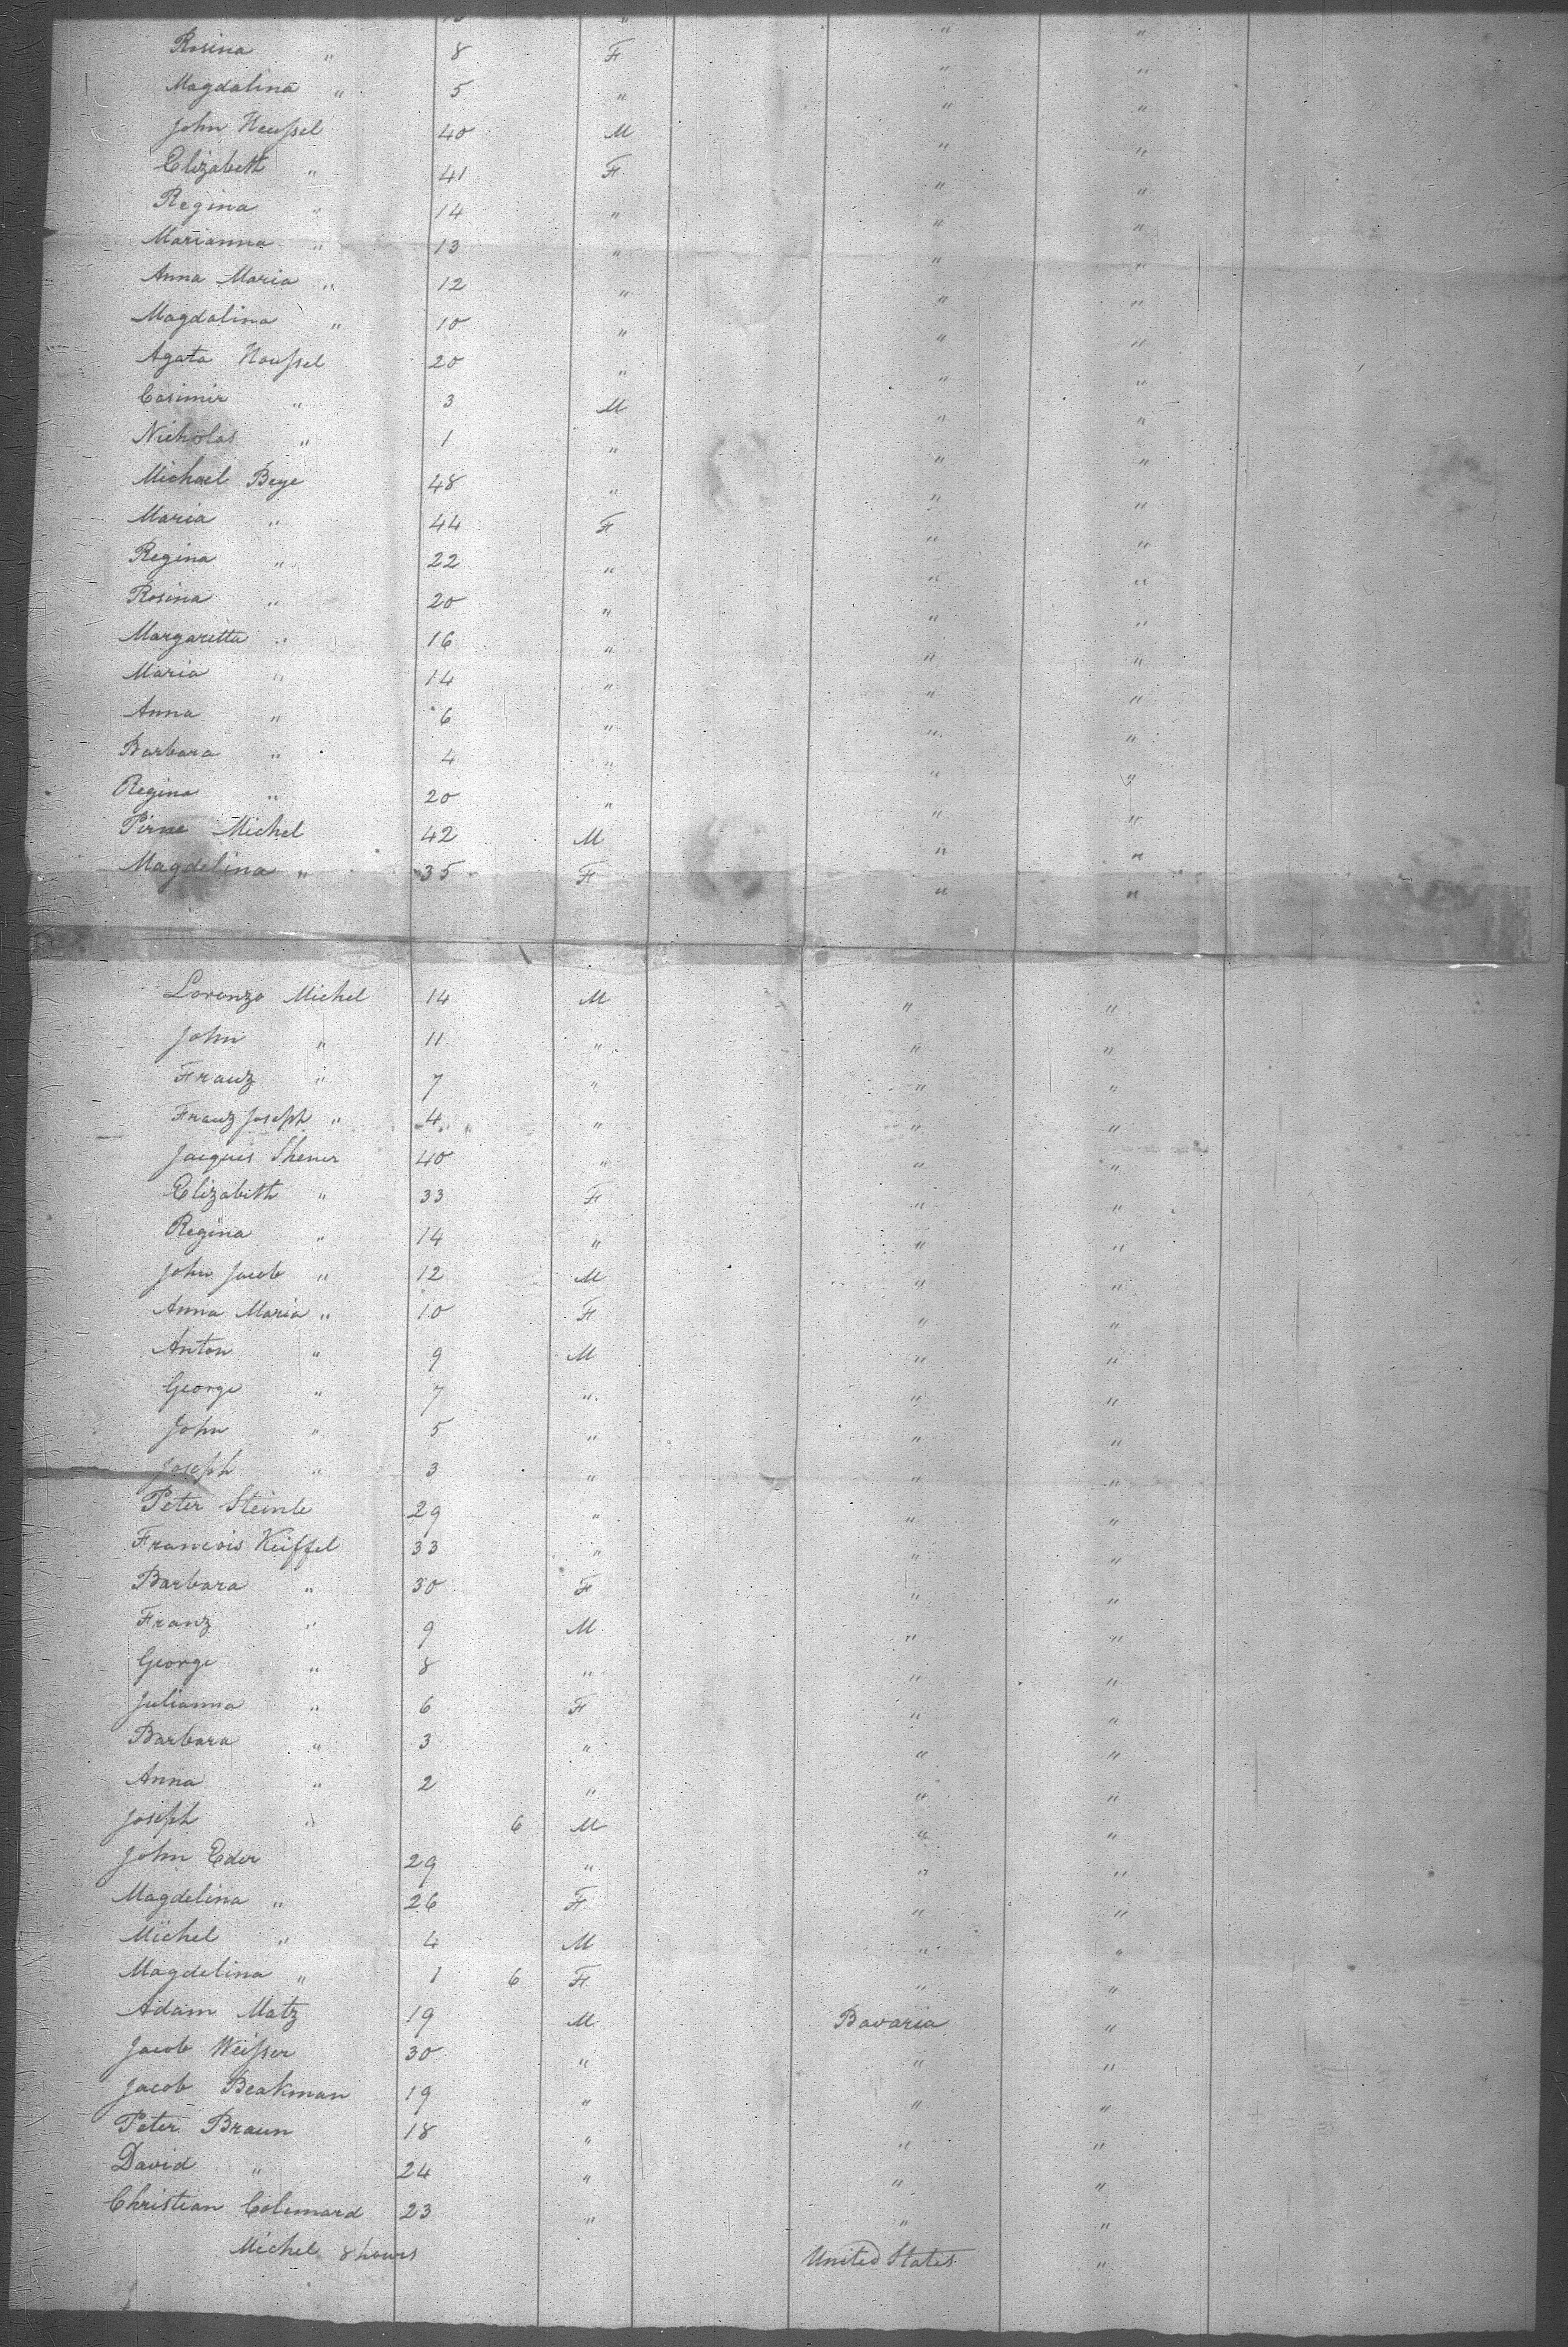 Rosina " 8 F " "
Magdalina " 5 " " "
John Neussel 40 M " "
Elizabeth " 41 F " "
Regina " 14 " " "
Marianna " 13 " " "
Anna Maria " 12 " " "
Magdalina " 10 " " "
Agata Noussel 20 " " "
Casimir " 3 M " "
Nicholas " 1 " " "
Michael Beye 48 " " "
Maria " 44 F " "
Regina " 22 " " "
Rosina " 20 " " "
Margaritta " 16 " " "
Maria " 14 " " "
Anna " 6 " " "
Barbara " 4 " " "
Regina " 20 " " "
Michel 42 M " "
Magdelina " 35 F " "
Lorenzo Michel 14 M " "
John " 11 " " "
Franz " 7 " " "
Franz Joseph " 4 " " "
Jacques Shener 40 " " "
Elizabeth " 33 F " "
Regina " 14 " " "
John Jacob " 12 M " "
Anna Maria " 10 F " "
Anton " 9 M " "
George " 7 " " "
John " 5 " " "
Joseph " 3 " " "
Peter Steinle 29 " " "
Francois Keiffel 33 " " "
Barbara " 30 F " "
Franz " 9 M " "
George " 8 " " "
Julianna " 6 F " "
Barbara " 3 " " "
Anna " 2 " " "
Joseph " 6 M " "
John Eder 29 " " "
Magdelina " 26 F " "
Michel " 4 M " "
Magdelina " 1 6 F " "
Adam Matz 19 M Bavaria "
Jacob Weisser 30 " " "
Jacob Beakman 19 " " "
Peter Braun 18 " " "
David " 24 " " "
Christian Colemard 23 " " "
Michel 8 hours United States "